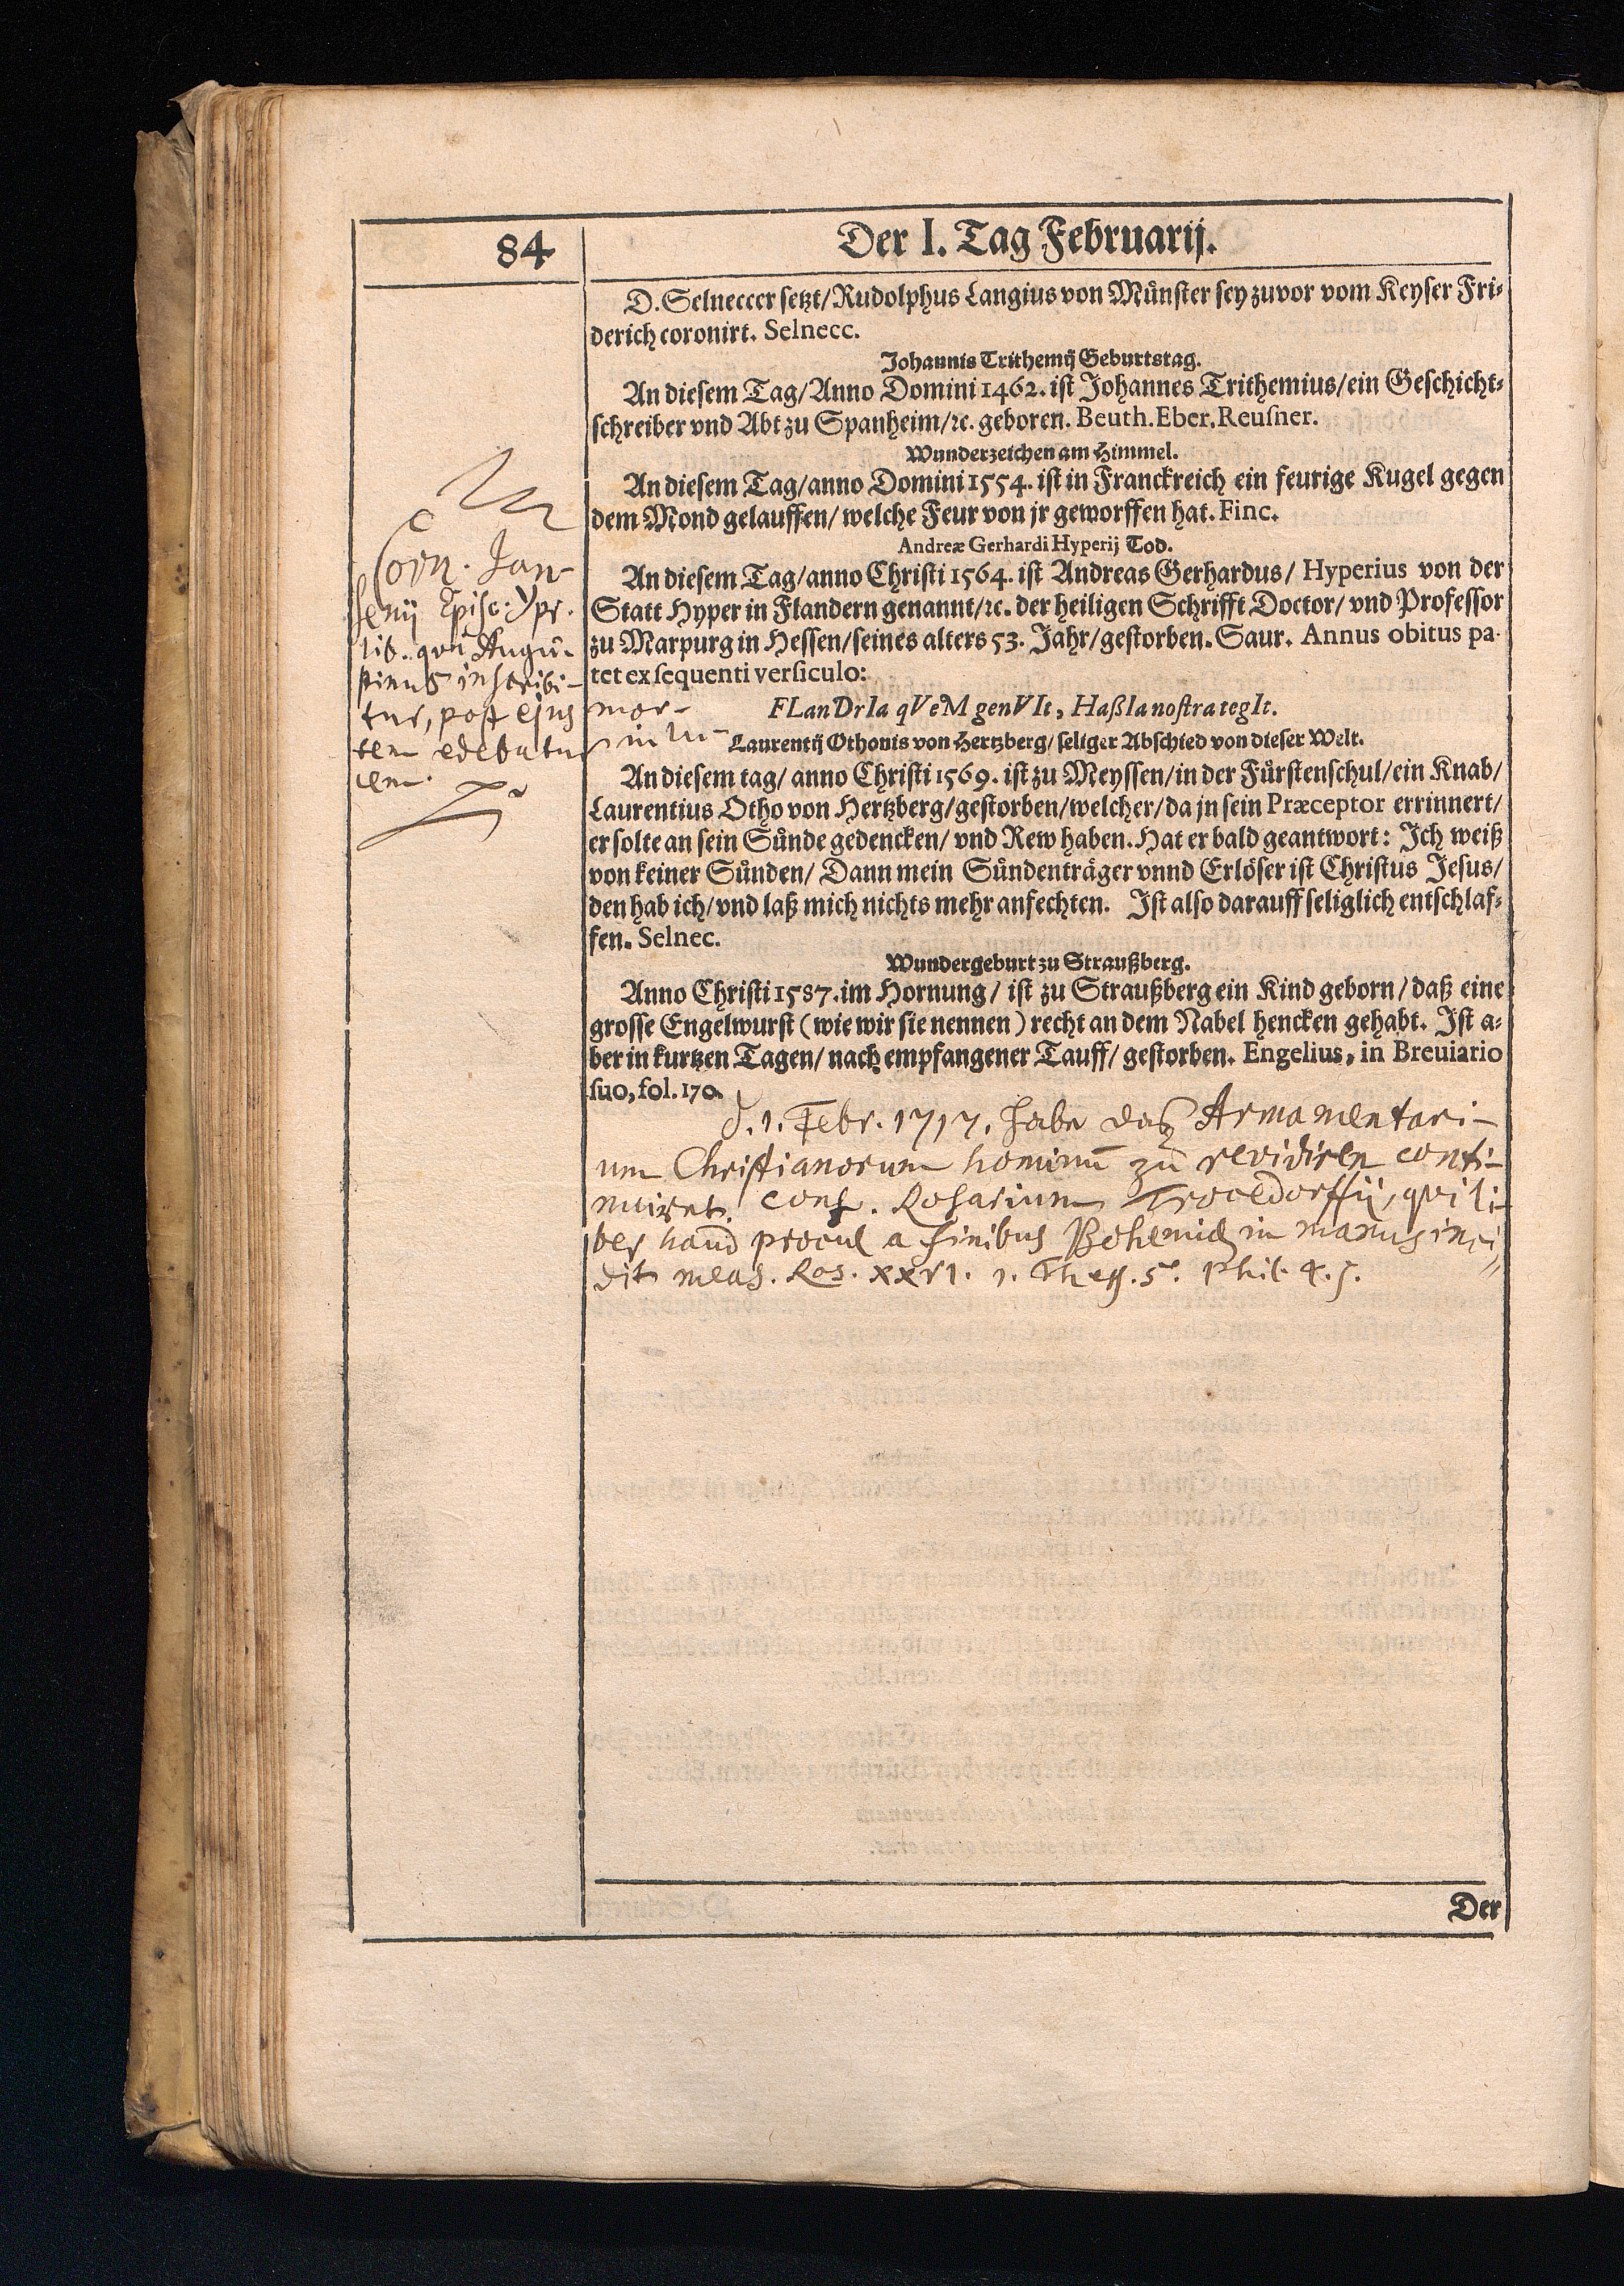 84
Der I. Tag Februarij.
D. Selneccer setzt/ Rudolphus Langius von Münster sey zuvor vom Keyser Fri-
derich coronirt. Selnecc.
Johannis Trithemij Geburtstag.
An diesem Tag/ Anno Domini 1462. ist Johannes Trithemius/ ein Geschicht-
schreiber vnd Abt zu Spanheim/ ꝛc. geboren. Beuth. Eber. Reusner.
Wunderzeichen am Himmel.
An diesem Tag/ anno Domini 1554. ist in Franckreich ein feurige Kugel gegen
dem Mond gelauffen/ welche Feur von jr geworffen hat. Finc.
Andreæ Gerhardi Hyperij Tod.
An diesem Tag/ anno Christi 1564. ist Andreas Gerhardus/ Hyperius von der
Statt Hyper in Flandern genannt/ ꝛc. der heiligen Schrifft Doctor/ vnd Professor
zu Marpurg in Hessen/ seines alters 53. Jahr/ gestorben. Saur. Annus obitus pa-
tet ex sequenti versiculo:
FLanDrIa qVeM genVIt, HaßIa nostra tegIt.
Laurentij Othonis von Hertzberg/ seliger Abschied von dieser Welt.
An diesem tag/ anno Christi 1569. ist zu Meyssen/ in der Fürstenschul/ ein Knab/
Laurentius Otho von Hertzberg/ gestorben/ welcher/ da jn sein Præceptor errinnert/
er solte an sein Sünde gedencken/ vnd Rew haben. Hat er bald geantwort: Ich weiß
von keiner Sünden/ Dann mein Sündenträger vnnd Erlöser ist Christus Jesus/
den hab ich/ vnd laß mich nichts mehr anfechten. Ist also darauff seliglich entschlaf-
fen. Selnec.
Wundergeburt zu Straußberg.
Anno Christi 1587. im Hornung/ ist zu Straußberg ein Kind geborn/ daß eine
grosse Engelwurst (wie wir sie nennen) recht an dem Nabel hencken gehabt. Ist a-
ber in kurtzen Tagen/ nach empfangener Tauff/ gestorben. Engelius, in Breuiario
suo, fol. 170.
d. 1. Febr. 1717. habe daß Armamentari-
um Christianorum hominū zu revidiren conti-
nuiret. conf. Rosarium Trocedorffij, qui li-
ber haud procul a finibus Bohemiæ in manus inci-
dit meas. Ros. XXVI. 1. Thess. 5. Phil. 4. 5.
Corn. Jan-
senij Episc: Ypr.
lib. qui Augu-
stinus inscribi-
tur, post ejus mor-
tem edebatur in lu-
cem.
Der